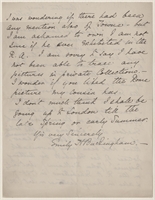 I was wondering if there had been
any mention also of Romney but
I am ashamed to own I am not
sure if he ever exhibited in the
R.A. I am sorry to say I have
not been able to trace any
pictures in private collections—
I wonder if you liked the Rome
picture my Cousin has.
I don't much think I shall be
going up to London till the
late Spring or early Summer
Yrs very sincerely
Emily